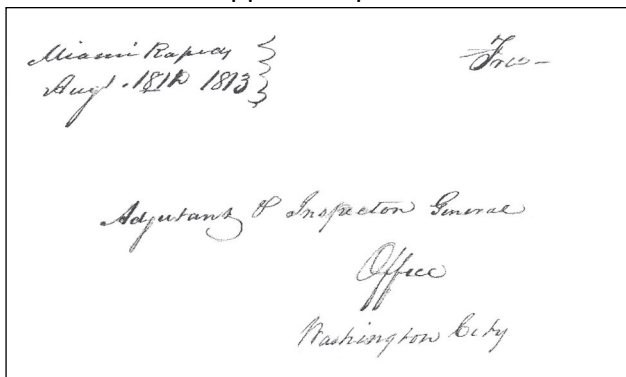 Miami Rapids
Augt. 18th 1813
Free-
Adjutant & Inspector General
Office
Washington City